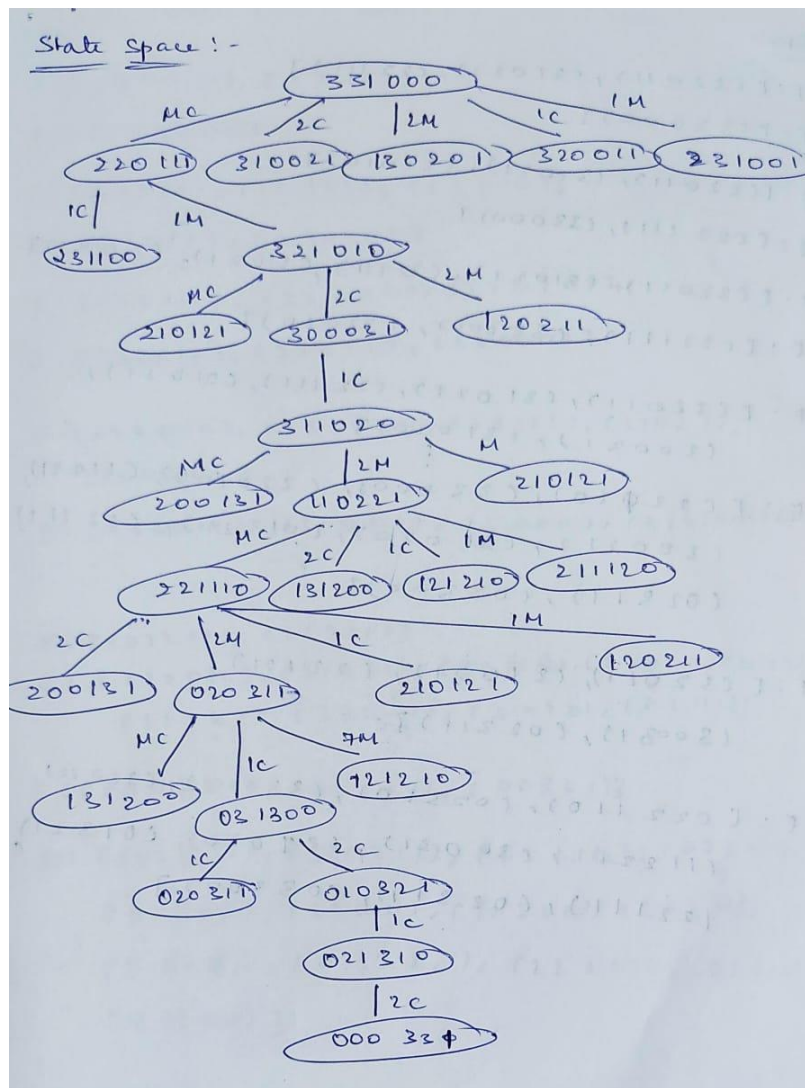 State Space :-
331000
MC 2C 2M 1C 1M
220111 310021 130201 320011 231001
1C 1M
231100 321010
MC 2C 2M
210121 300031 120211
1C
311020
MC 2M M
200131 110221 210121
MC 2C 1C 1M
221110 131200 121210 211120
2C 2M 1C 1M
200131 020311 210121 120211
MC 1C 7M
131200 031300 121210
1C 2C
020311 010321
1C
021310
2C
000 33